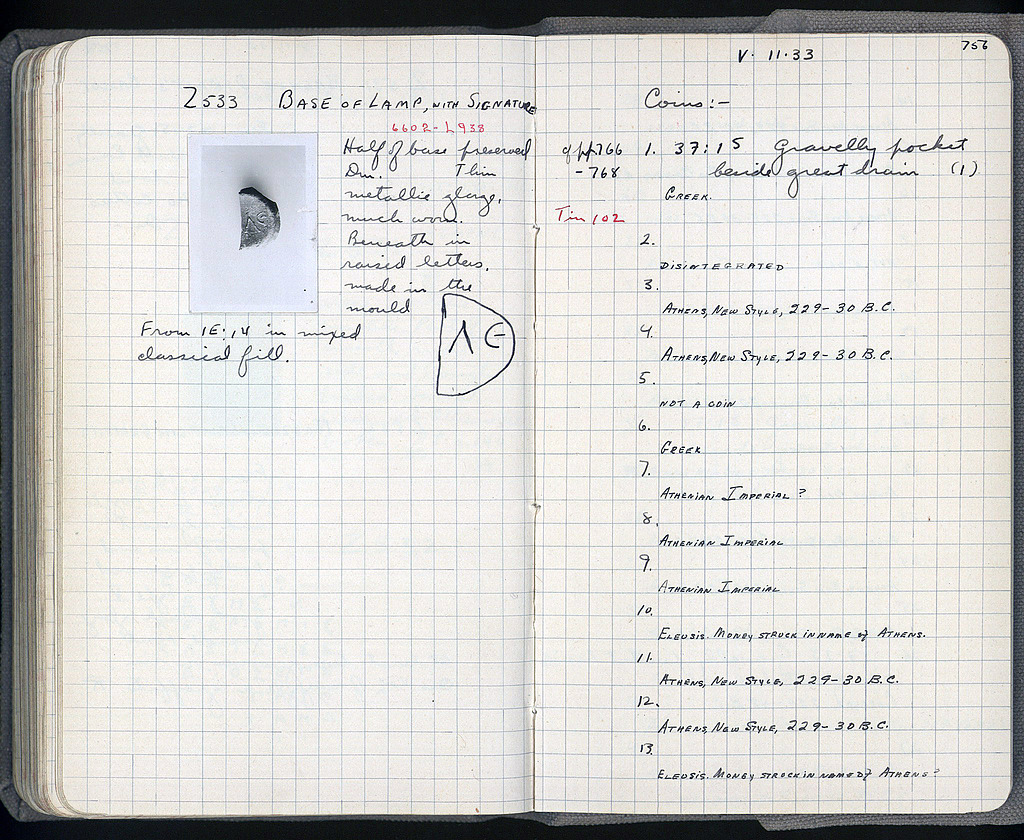 2533 BASE OF LAMP, WITH SIGNATURE
6602-L938
Half of base preserved
Dm. Thin
metallic glaze,
much worn.
Beneath in
raised letters,
made in the
mould
Λ Є
From 1E:14 in mixed
classical fill.
756
V. 11.33
Coins:-
of pp. 766
- 768
Tin 102
1. 37:15 Gravelly pocket
beside great drain (1)
GREEK.
2.
DISINTEGRATED
3.
ATHENS, NEW STYLE, 229-30 B.C.
4.
ATHENS, NEW STYLE, 229-30 B.C.
5.
NOT A COIN
6.
GREEK
7.
ATHENIAN IMPERIAL ?
8.
ATHENIAN IMPERIAL
9.
ATHENIAN IMPERIAL
10.
ELEUSIS. MONEY STRUCK IN NAME of ATHENS.
11.
ATHENS, NEW STYLE, 229-30 B.C.
12.
ATHENS, NEW STYLE, 229-30 B.C.
13.
ELEUSIS. MONEY STRUCK IN NAME OF ATHENS?